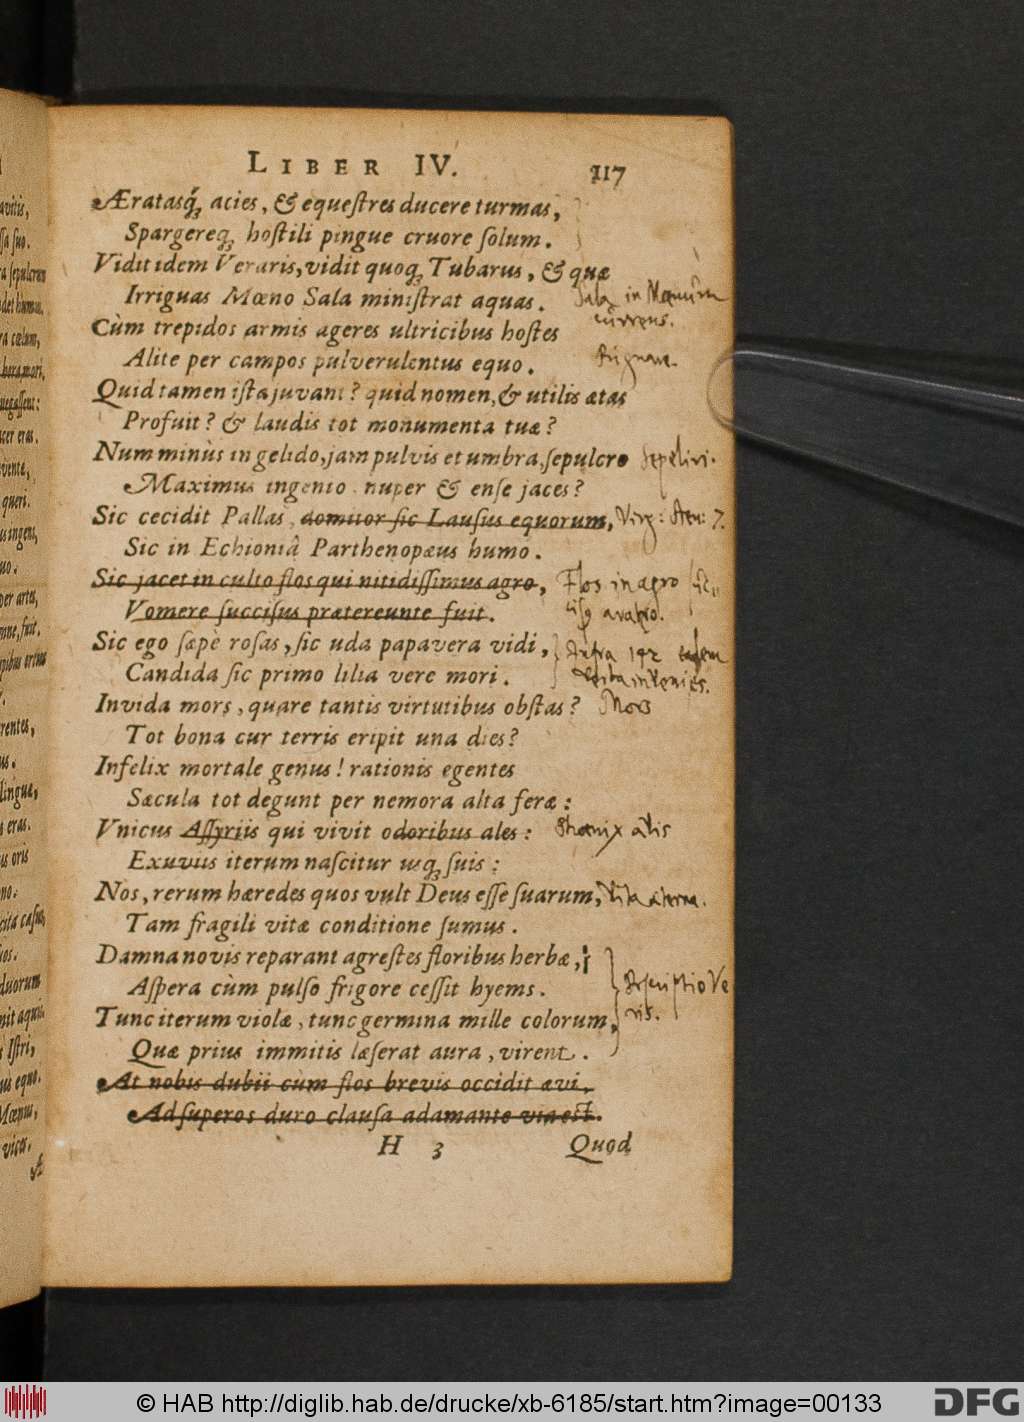 LIBER IV. 117
Æratasq́ꝫ acies, & equeſtres ducere turmas,
Spargereqꝫ hoſtili pingue cruore ſolum.
Vidit idem Veraris, vidit quoqꝫ Tubarus, & quæ
Irriguas Mœno Sala miniſtrat aquas. Sala in Mœnum
currens.
Cùm trepidos armis ageres ultricibus hoſtes
Alite per campos pulverulentus equo. Pugnare.
Quid tamen iſta juvant? quid nomen, & utilis ætas
Profuit? & laudis tot monumenta tuæ?
Num minùs in gelido, jam pulvis et umbra, ſepulcro Sepeliri.
Maximus ingenio nuper & enſe jaces?
Sic cecidit Pallas, domitor ſic Lauſus equorum, Virg: Aen: 7.
Sic in Echioniâ Parthenopæus humo.
Sic jacet in culto flos qui nitidiſſimus agro, Flos in agro
Vomere ſucciſus prætereunte fuit. aratro.
Sic ego ſæpè roſas, ſic uda papavera vidi, Infra 192
Candida ſic primo lilia vere mori. invenies.
Invida mors, quare tantis virtutibus obſtas? Mors
Tot bona cur terris eripit una dies?
Infelix mortale genus! rationis egentes
Sæcula tot degunt per nemora alta feræ:
Vnicus Aſſyriis qui vivit odoribus ales: Phœnix avis
Exuviis iterum naſcitur uſqꝫ ſuis:
Nos, rerum hæredes quos vult Deus eſſe ſuarum, Vita æterna.
Tam fragili vitæ conditione ſumus.
Damna novis reparant agreſtes floribus herbæ,
Aſpera cùm pulſo frigore ceſſit hyems. Descriptio Ve
Tunc iterum violæ, tunc germina mille colorum, ris.
Quæ prius immitis læſerat aura, virent.
At nobis dubii cùm flos brevis occidit ævi,
Ad ſuperos duro clauſa adamante via eſt.
H 3 Quod
© HAB http://diglib.hab.de/drucke/xb-6185/start.htm?image=00133 DFG